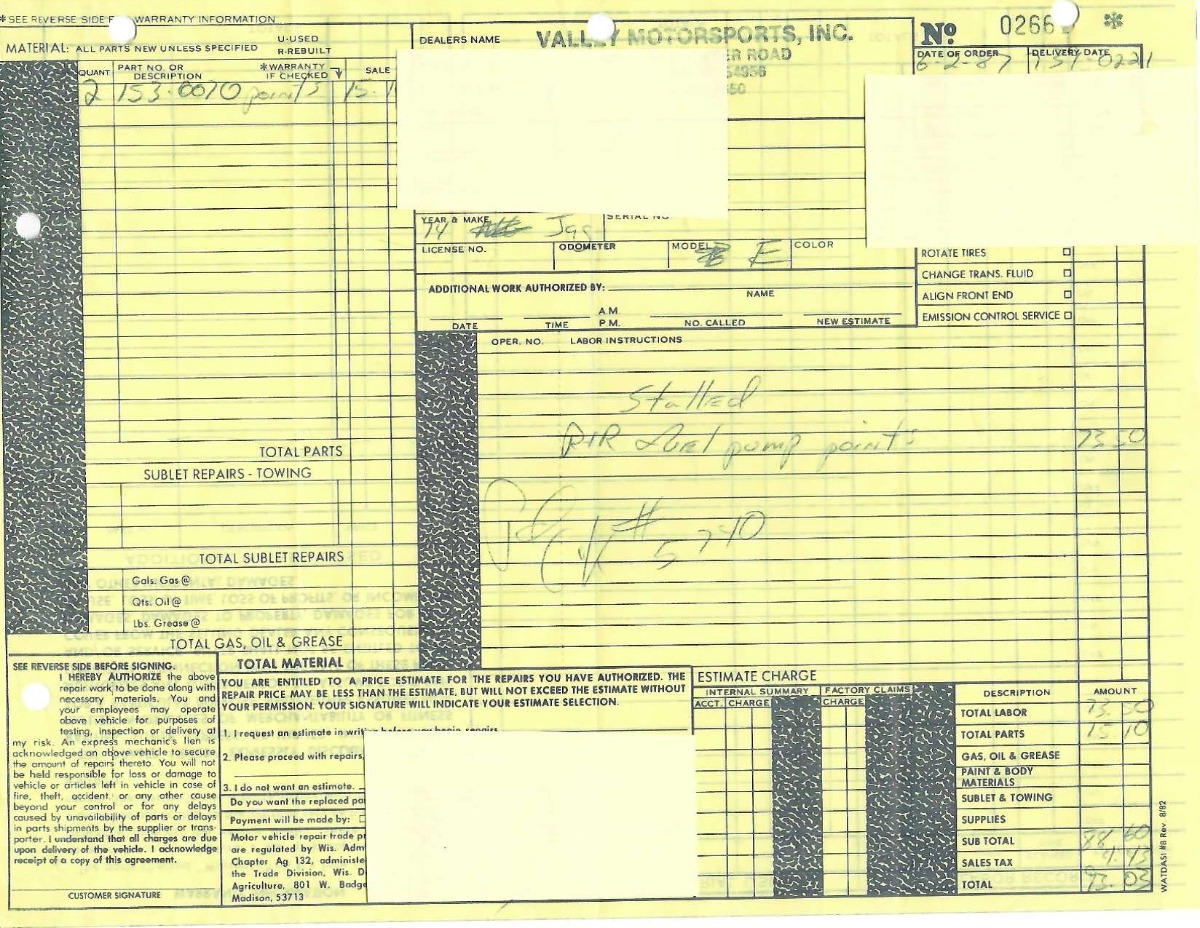 *SEE REVERSE SIDE F WARRANTY INFORMATION
MATERIAL: ALL PARTS NEW UNLESS SPECIFIED
U-USED
R-REBUILT
QUANT
PART NO. OR DESCRIPTION
*WARRANTY IF CHECKED
SALE
2 153-0070 points 15.1
TOTAL PARTS
SUBLET REPAIRS - TOWING
TOTAL SUBLET REPAIRS
Gals. Gas @
Qts. Oil @
Lbs. Grease @
TOTAL GAS, OIL & GREASE
TOTAL MATERIAL
DEALERS NAME
VALLEY MOTORSPORTS, INC.
ER ROAD
54956
No 0266 *
DATE OF ORDER
DELIVERY DATE
6-2-87
YEAR & MAKE
SERIAL NO
74 Jag
LICENSE NO.
ODOMETER
MODEL
COLOR
E
ADDITIONAL WORK AUTHORIZED BY:
NAME
DATE
TIME
AM
P.M.
NO. CALLED
NEW ESTIMATE
ROTATE TIRES
CHANGE TRANS. FLUID
ALIGN FRONT END
EMISSION CONTROL SERVICE
OPER. NO.
LABOR INSTRUCTIONS
Stalled
R+R fuel pump points 73.50
Pd Ck # 5740
SEE REVERSE SIDE BEFORE SIGNING.
I HEREBY AUTHORIZE the above
repair work to be done along with
necessary materials. You and
your employees may operate
above vehicle for purposes of
testing, inspection or delivery at
my risk. An express mechanic's lien is
acknowledged on above vehicle to secure
the amount of repairs thereto. You will not
be held responsible for loss or damage to
vehicle or articles left in vehicle in case of
fire, theft, accident or any other cause
beyond your control or for any delays
caused by unavailability of parts or delays
in parts shipments by the supplier or trans-
porter. I understand that all charges are due
upon delivery of the vehicle. I acknowledge
receipt of a copy of this agreement.
CUSTOMER SIGNATURE
YOU ARE ENTITLED TO A PRICE ESTIMATE FOR THE REPAIRS YOU HAVE AUTHORIZED. THE
REPAIR PRICE MAY BE LESS THAN THE ESTIMATE, BUT WILL NOT EXCEED THE ESTIMATE WITHOUT
YOUR PERMISSION. YOUR SIGNATURE WILL INDICATE YOUR ESTIMATE SELECTION.
1. I request an estimate in writing before you begin repairs
2. Please proceed with repairs,
3. I do not want an estimate.
Do you want the replaced pa
Payment will be made by:
Motor vehicle repair trade pr
are regulated by Wis. Adm
Chapter Ag 132, administe
the Trade Division, Wis. D
Agriculture, 801 W. Badge
Madison, 53713
ESTIMATE CHARGE
INTERNAL SUMMARY
FACTORY CLAIMS
ACCT.
CHARGE
CHARGE
DESCRIPTION
AMOUNT
TOTAL LABOR 73.50
TOTAL PARTS 15.10
GAS, OIL & GREASE
PAINT & BODY MATERIALS
SUBLET & TOWING
SUPPLIES
SUB TOTAL 88.60
SALES TAX 4.43
TOTAL 93.03
WATDASI #B Rev. 8/82